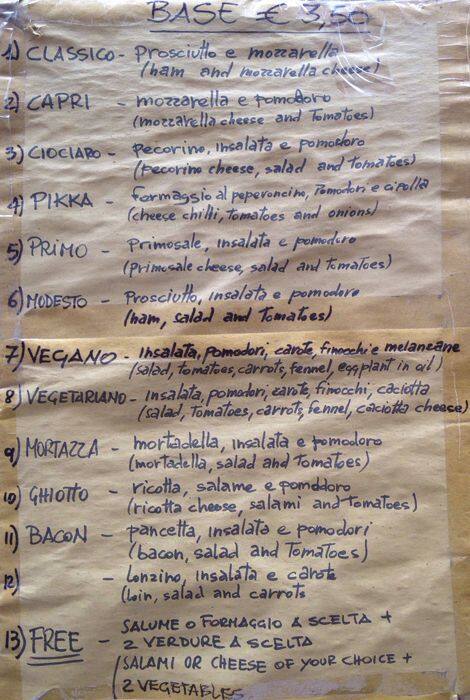 BASE € 3,50
1) CLASSICO - Prosciutto e mozzarella
(ham and mozzarella cheese)
2) CAPRI - mozzarella e pomodoro
(mozzarella cheese and Tomatoes)
3) CIOCIARO - Pecorino, insalata e pomodoro
(Pecorino cheese, salad and Tomatoes)
4) PIKKA - formaggio al peperoncino, Pomodori e cipolla
(cheese chilli, tomatoes and onions)
5) PRIMO - Primosale, insalata e pomodoro
(primosale cheese, salad and Tomatoes)
6) MODESTO - Prosciutto, insalata e pomodoro
(ham, salad and Tomatoes)
7) VEGANO - Insalata, pomodori, carote, finocchi e melanzane
(salad, tomatoes, carrots, fennel, eggplant in oil)
8) VEGETARIANO - Insalata, pomodori, carote, finocchi, caciotta
(salad, Tomatoes, carrots, fennel, caciotta cheese)
9) MORTAZZA - mortadella, insalata e pomodoro
(mortadella, salad and Tomatoes)
10) GHIOTTO - ricotta, salame e pomodoro
(ricotta cheese, salami and tomatoes)
11) BACON - pancetta, insalata e pomodori
(bacon, salad and Tomatoes)
12) - Lonzino, insalata e carote
(Loin, salad and carrots
13) FREE - SALUME O FORMAGGIO A SCELTA +
2 VERDURE A SCELTA
(SALAMI OR CHEESE OF YOUR CHOICE +
2 VEGETABLES